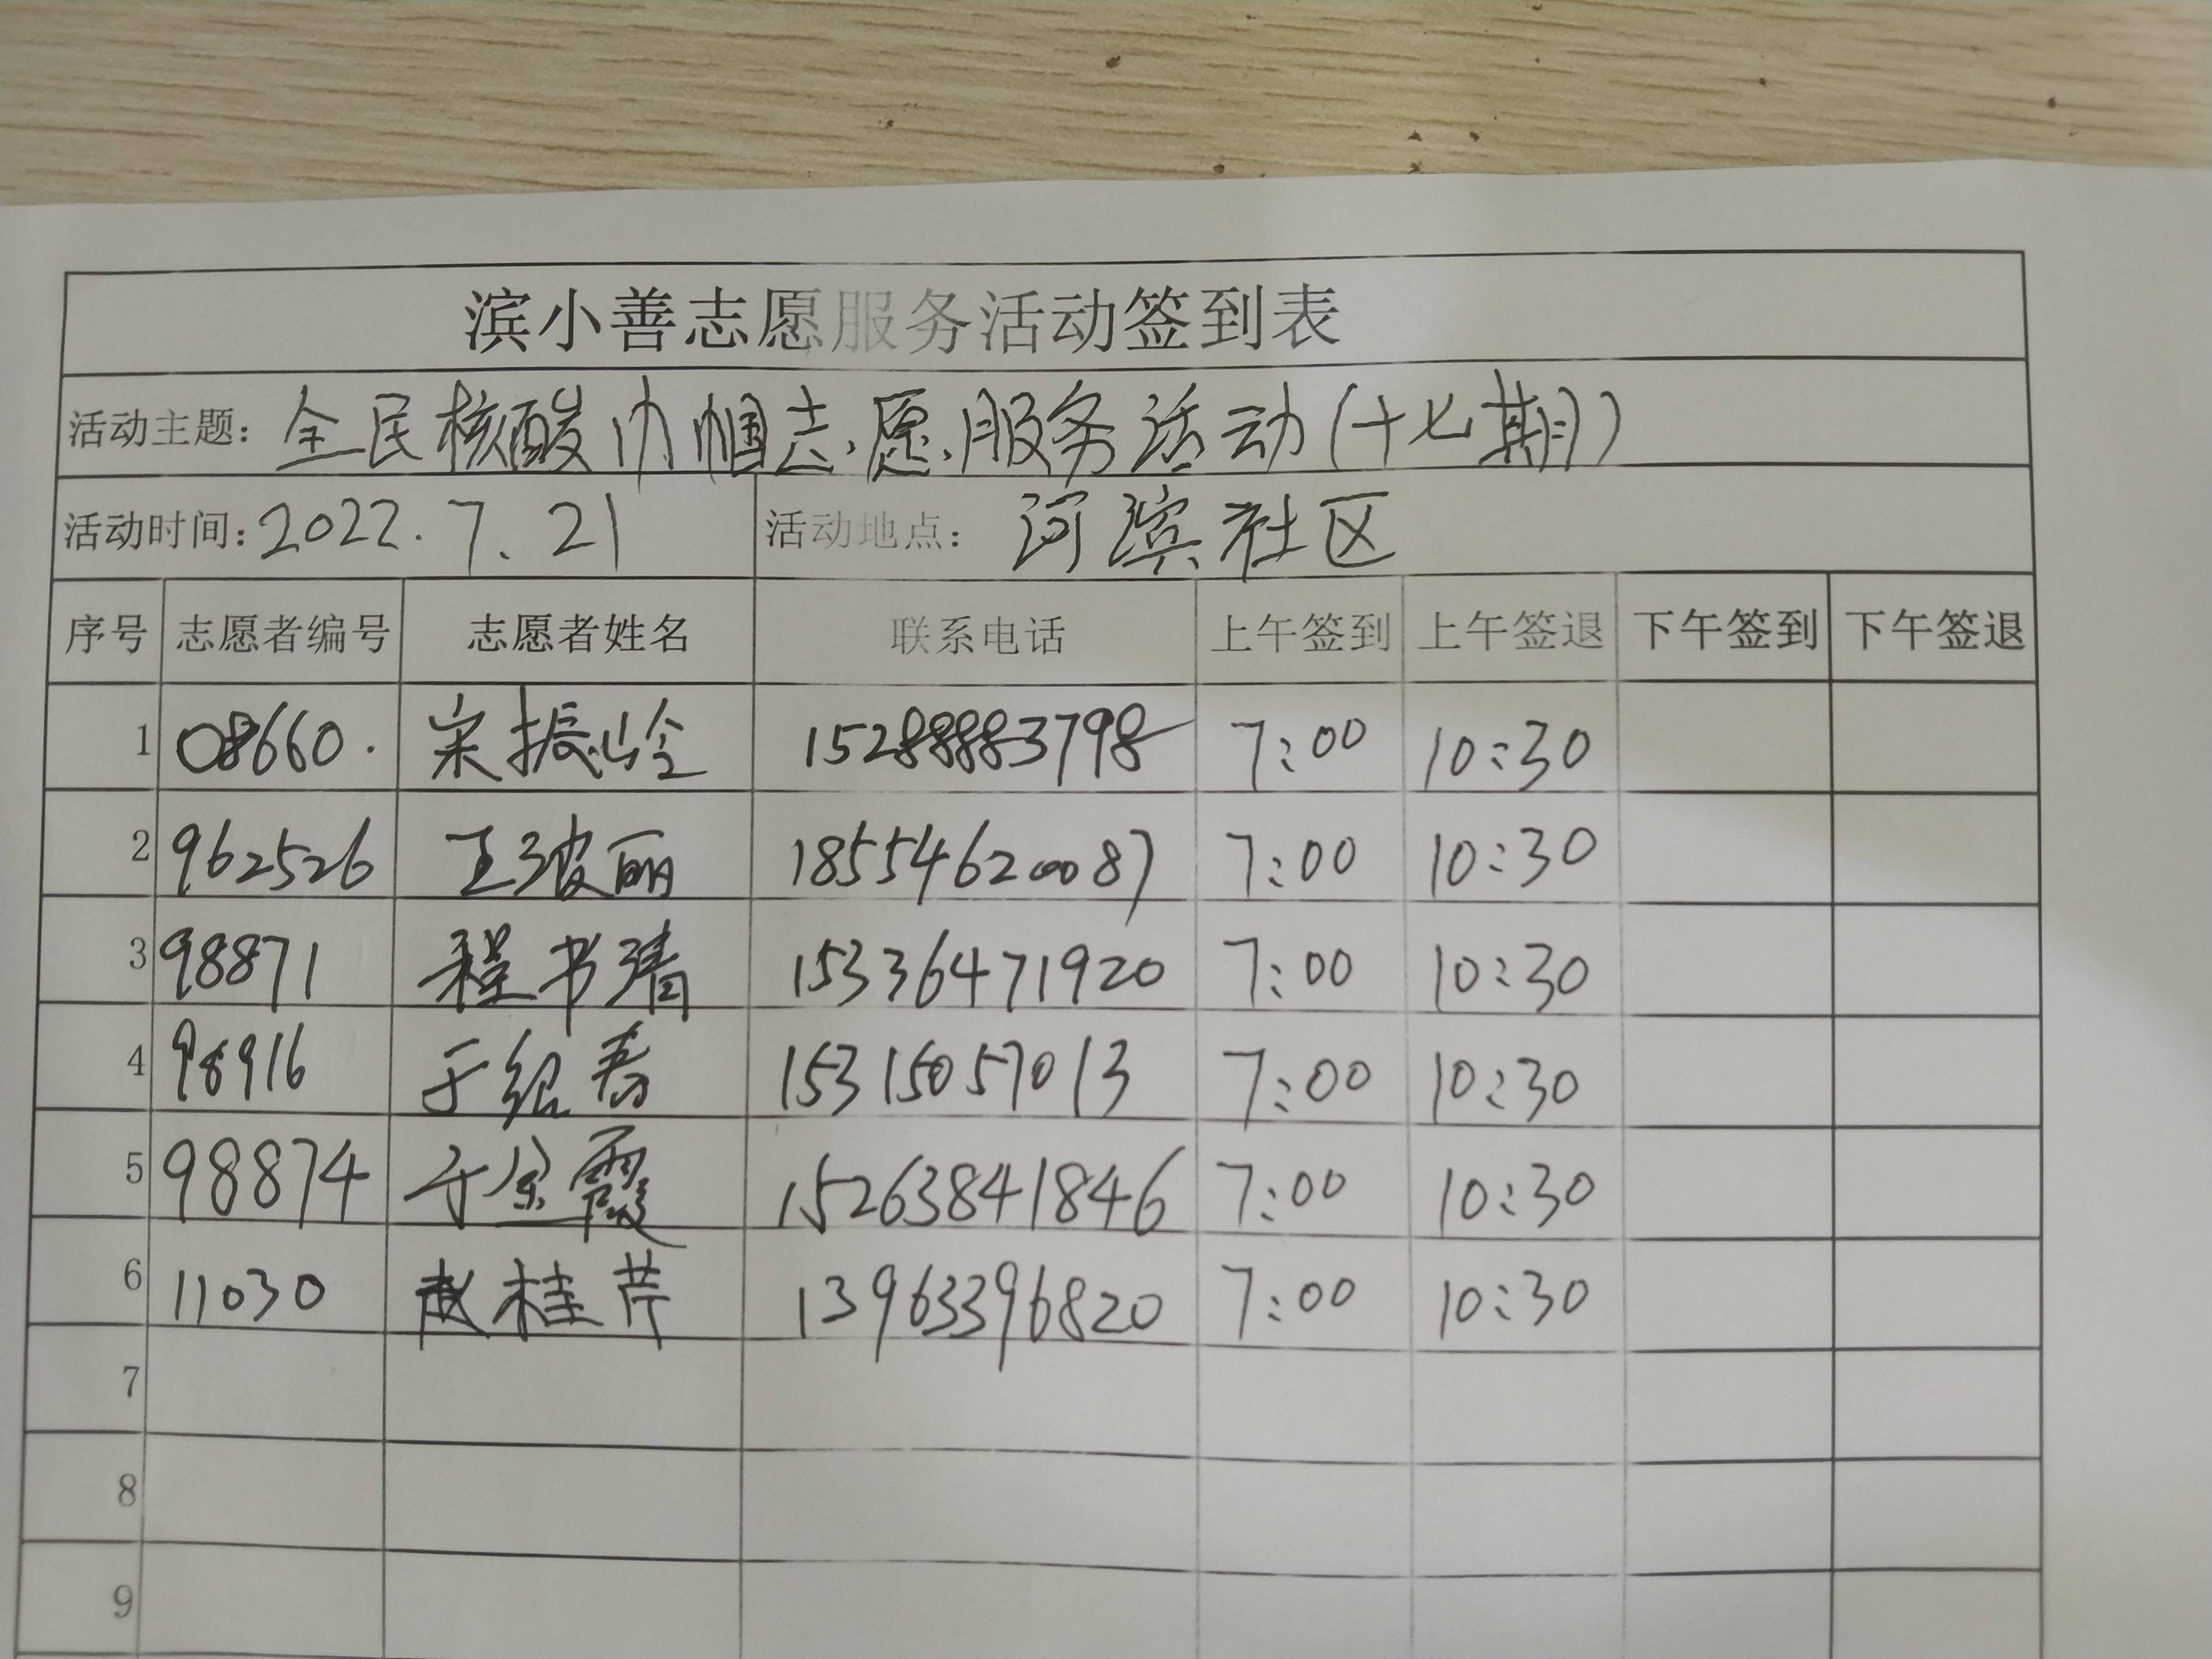 滨小善志愿服务活动签到表
活动主题：全民核酸巾帼志愿服务活动(十七期)
活动时间：2022.7.21 活动地点：河滨社区
序号 志愿者编号 志愿者姓名 联系电话 上午签到 上午签退 下午签到 下午签退
1 08660. 宋振岭 15288883798 7:00 10:30
2 962526 王玻丽 18554620087 7:00 10:30
3 98871 程书清 15336471920 7:00 10:30
4 98916 于绍春 15315057013 7:00 10:30
5 98874 于金霞 15263841846 7:00 10:30
6 11030 赵桂芹 13963396820 7:00 10:30
7
8
9